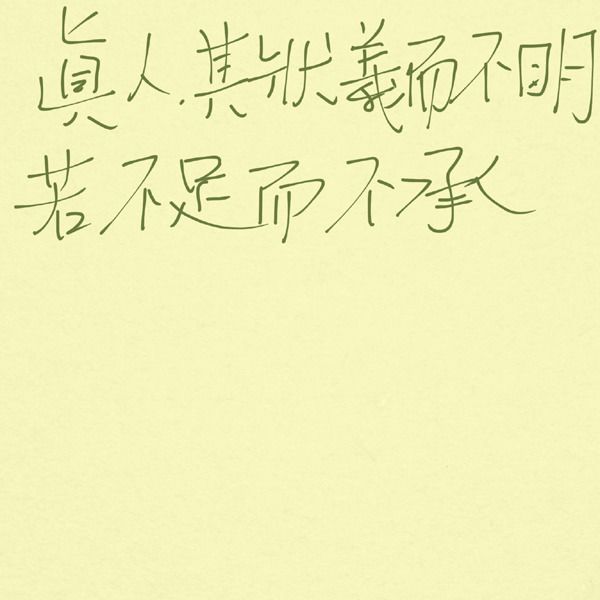 眞人.其狀義而不明
若不足而不承